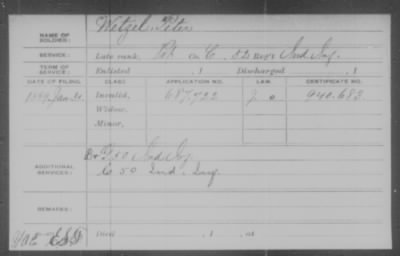 NAME OF SOLDIER: Wetzel, Peter
SERVICE: Late rank, Pvt Co C, 52 Reg't Ind Inf.
TERM OF SERVICE: Enlisted , 1 Discharged , 1
DATE OF FILING. APPLICATION NO. LAW. CERTIFICATE NO.
1889 Jan 30 Invalid, 687,722 940.683
Widow,
Minor,
ADDITIONAL SERVICES: Ind Inf
C 50 Ind. Inf
REMARKS:
Died , 1 , at